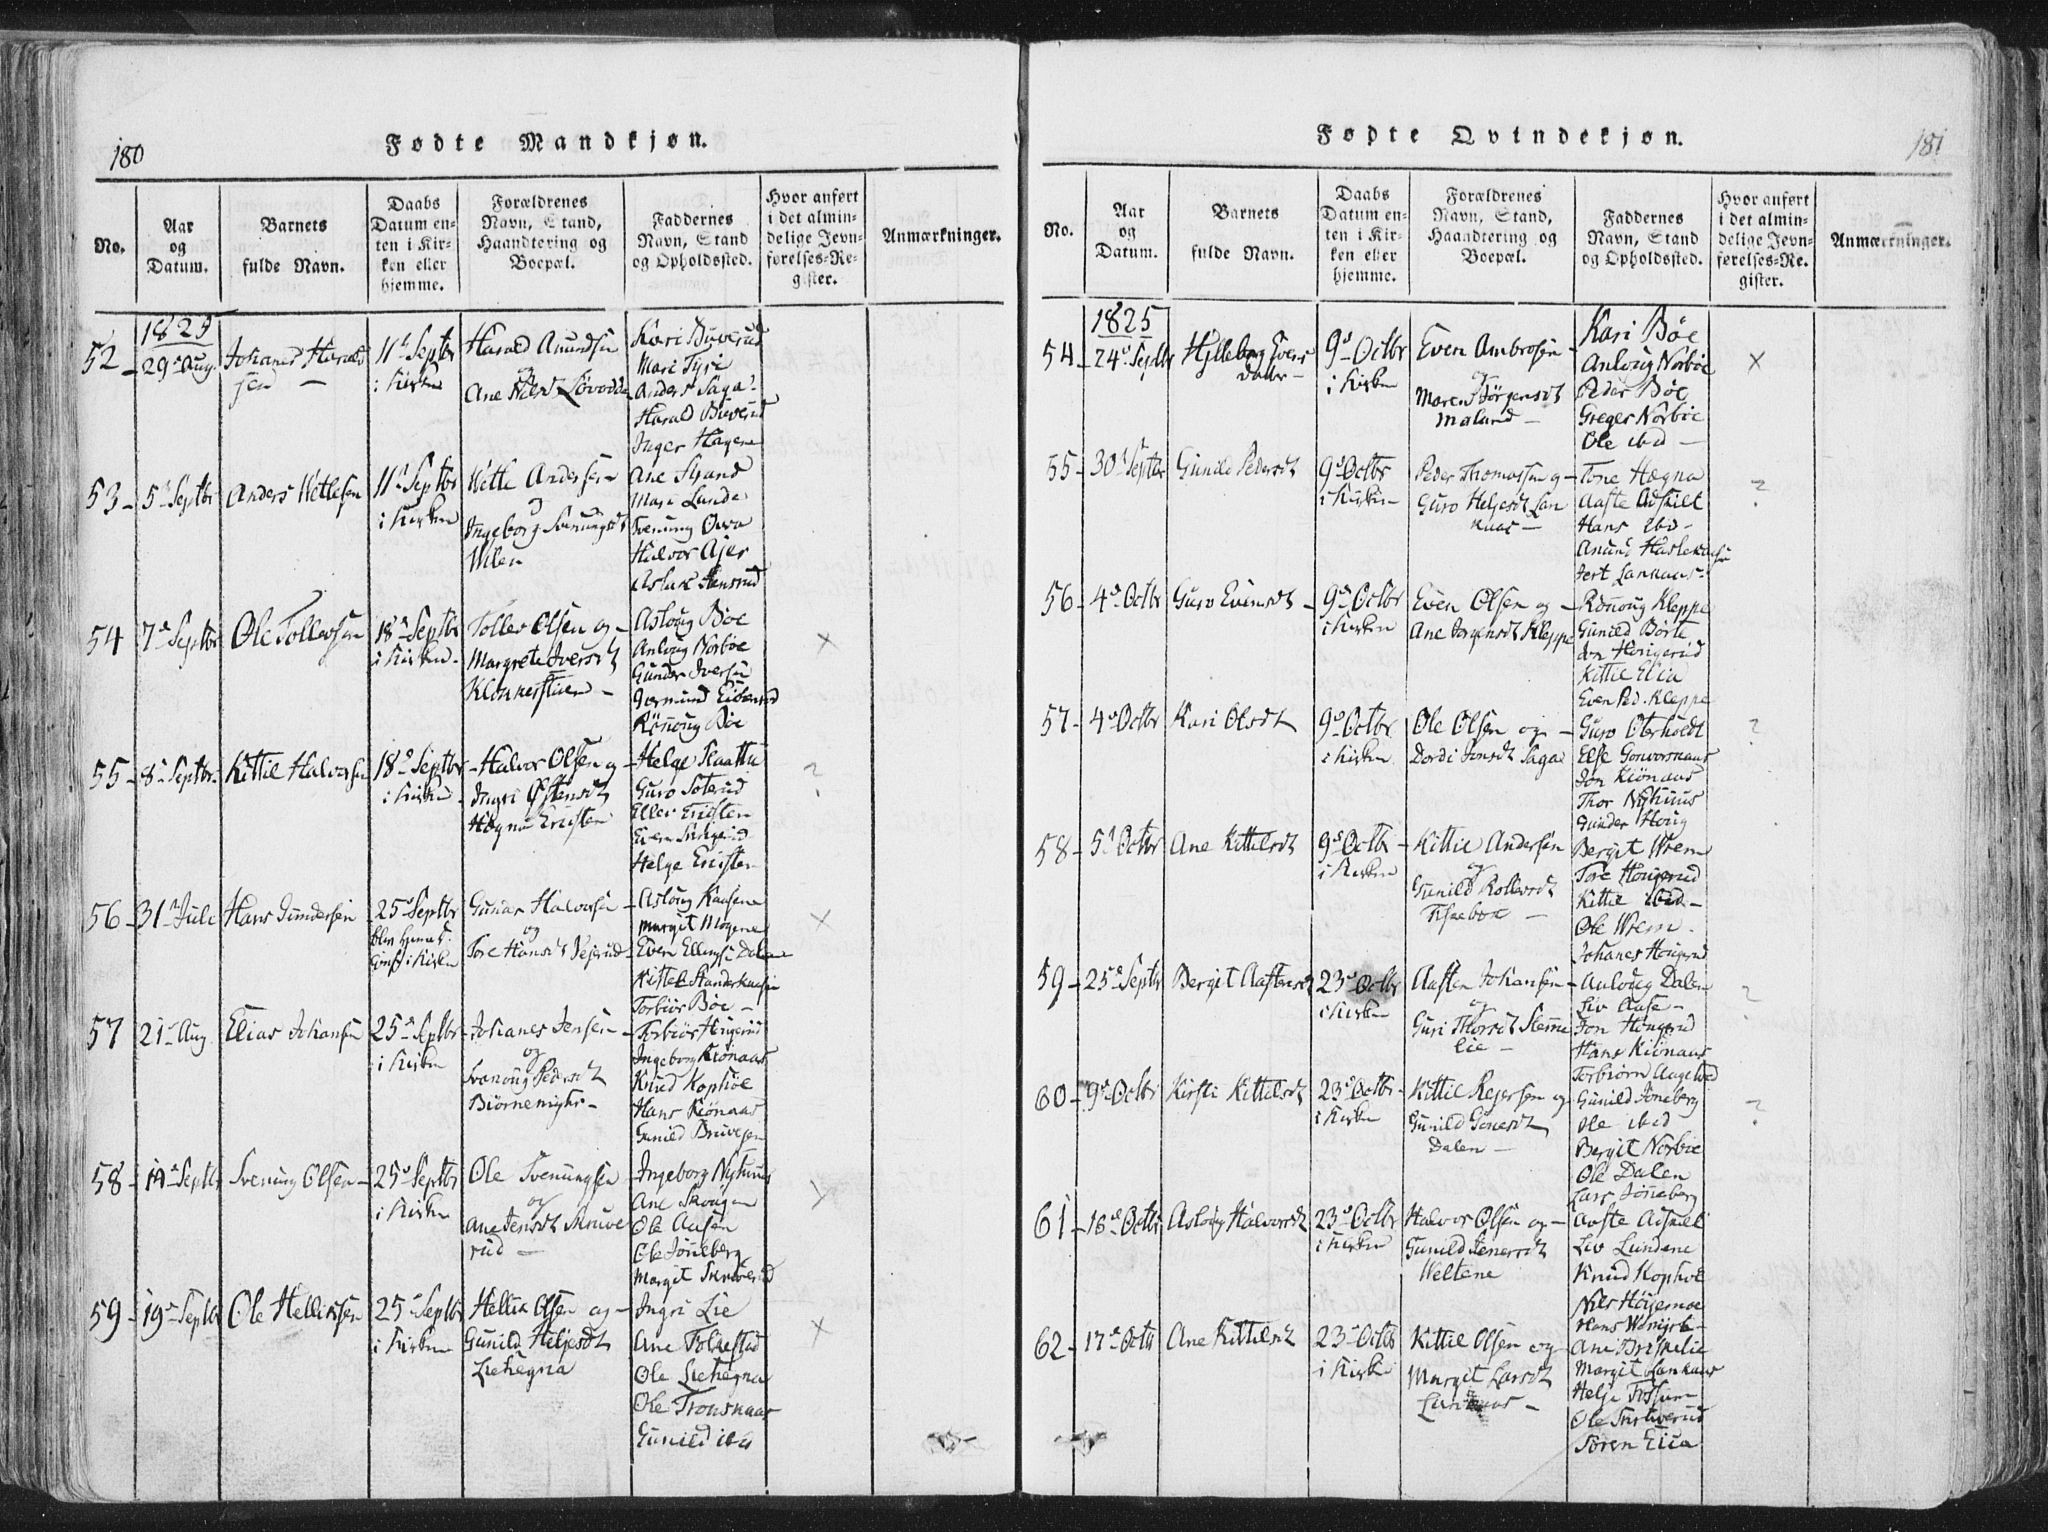 180
Fødte Mandkjøn.
No.
Aar
og
Datum.
Barnets
fulde Navn.
Daabs
Datum en-
ten i Kir-
ken eller
hjemme.
Forældrenes
Navn, Stand,
Haandtering og
Boepæl.
Faddernes
Navn, Stand
og Opholdssted.
Hvor anført
i det almin-
delige Jevn-
førelses-Re-
gister.
Anmærkninger.
1825
52 - 29 Aug. Johanes Harald
sen -
11 Septbr
i Kirken
Harald Anundsen
og
Ane
Kari Buverud
Mari
Anders Saga
Harald Buverud
Inger Hagene
53 - 5 Septbr Anders Wetlesen
11 Septbr
i Kirken
Wetle Andersen
og
Ingeborg Svenungsdt
Ane Strand
Mari Lunde
Svenung
Halvor
Aslak
54 7 Septbr Ole Tollevsen
18 Septbr
i Kirken
Tollev Olsen og
Margrete Iversdt
Asloug Bøe
Anloug Norbøe
Gunder Iversen
Gormund
Rønnoug Bøe
55 - 8 Septbr. Kittil Halvorsen
18 Septbr
i Kirken
Halvor Olsen og
Ingri Østensdt
Hægna
Helge
Guro
Even
Helge
56 - 31 Juli Hans Gundersen
25 Septbr
blev hjemmed.
Conf. i Kirken
Gunder Halvorsen
og
Tore Hansdt Vejerud
Asloug
Margit Mogene
Even Ellingsen Dalene
Kittel
Torbiør Bøe -
57 21 Aug Elias Johansen
25 Septbr
i Kirken
Johanes Jensen
og
Svanoug Pedersdt
Biørnemyhr -
Torbiør Hougerud
Ingeborg Kiønaas
Knud Kophøe
Hans Kiønaas
Gunild
58 - 14 Septbr Svenung Olsen -
25 Septbr
i Kirken
Ole Svenungsen
og
Ane Jensdt Skruve
rud -
Ingeborg Nyhuus
Ane Skougen
Ole Aasen
Ole Jønneberg
Margit
59 - 19 Septbr Ole Helliksen
25 Septbr
i Kirken
Hellik Olsen og
Gunild Heljesdt
Liehegna
Ingri Lie
Ane Folkestad
Ole Liehegna
Ole Tronsnaas
Gunild ibd
181
Fødte Qvindekjøn.
No.
Aar
og
Datum.
Barnets
fulde Navn.
Daabs
Datum en-
ten i Kir-
ken eller
hjemme.
Forældrenes
Navn, Stand,
Haandtering og
Boepæl.
Faddernes
Navn, Stand
og Opholdssted.
Hvor anført
i det almin-
delige Jevn-
førelses-Re-
gister.
Anmærkninger.
1825
54 - 24 Septbr Hylleborg Evens
Datter -
9 Octbr
i Kirken
Even Ambrosen
og
Maren Jørgensdt
Maland -
Kari Bøe
Anloug Norbøe
Peder Bøe
Greger Norbøe
Ole ibid -
55 - 30 Septbr Gunild Pedersdt
9 Octbr
i Kirken
Peder Thomassen og
Guro Heljesdt Lan
kaas -
Tone Hægna
Aaste Adskilt
Hans ibd -
Anund
Lankaas
56 - 4 Octbr Guro Evensdt -
9 Octbr
i Kirken
Even Olsen og -
Ane Jorgensdt Kleppe
Rønnoug Kleppe
Gunild Børte
Jon Hougerud
Kittil Eica
Even Ped. Kleppe
57 - 4 Octbr Kari Olsdt
9 Octbr
i Kirken
Ole Olsen og -
Dordi Jonsdt Saga
Guro Oterholdt
Else Gonvorsnaas
Jon Kiønaas
Thor Nyhuus
Gunder Houg
58 - 5 Octbr Ane Kittilsdt
9 Octbr
i Kirken
Kittil Andersen
og
Gunild Rollevsdt
Bergit Wrem
Tore Hougerud
Kittil ibid -
Ole Wrem -
Johanes Hougerud
59 - 25 Septbr Bergit Aastensdt
23 Octbr
i Kirken
Aasten Johansen
og
Guri Thorsdt Stemme
lie -
Anloug Dalen
Liv Aase -
Jon Hougerud
Hans Kiønaas
Torbiørn
60 - 9 Octbr Kirsti Kittilsdt
23 Octbr
i Kirken
Kittil Rejersen og
Gunild Gonesdt
Dalen -
Gunild Jønneberg
Ole ibid
Bergit Norbøe
Ole Dalen
Lars Jønneberg
61 - 16 Octbr Asloug Halvorsdt
23 Octbr
i Kirken
Halvor Olsen og -
Gunild Stenersdt
Weltene
Aaste Adskilt
Liv Lundene
Knud Kophøe
Nils
Hans
62 - 17 Octbr Ane Kittilsdt
23 Octbr
i Kirken
Kittil Olsen og
Margit Larsdt
Lankaas -
Ane Briskelie
Margit Lankaas
Helje Fossum
Ole
Søren Eica